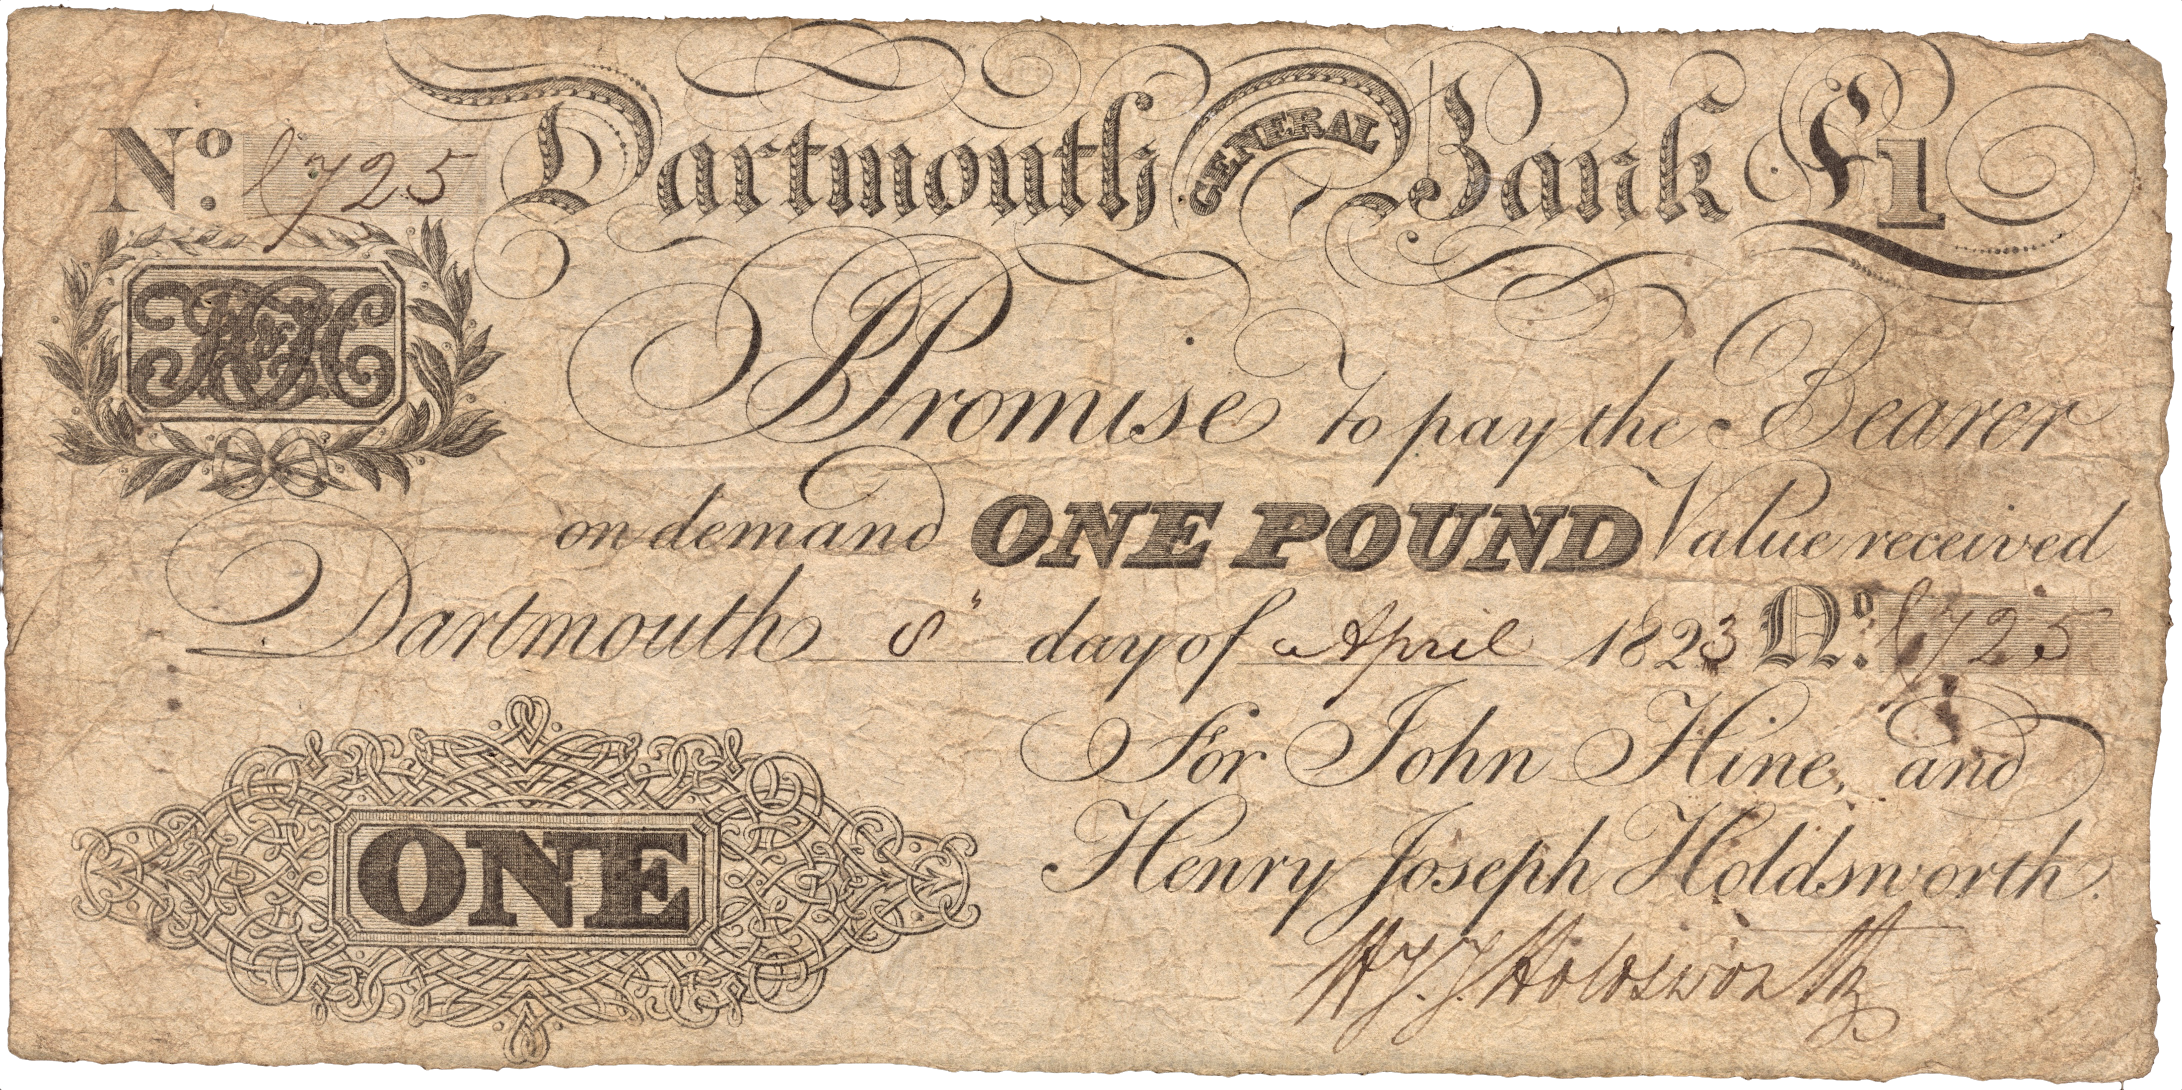 No. l725 Dartmouth GENERAL Bank £1
H&H
I Promise to pay the Bearer
on demand ONE POUND Value received
Dartmouth 8" day of April 1823 No. l725
For John Hine, and
ONE
Henry Joseph Holdsworth.
Holdsworth